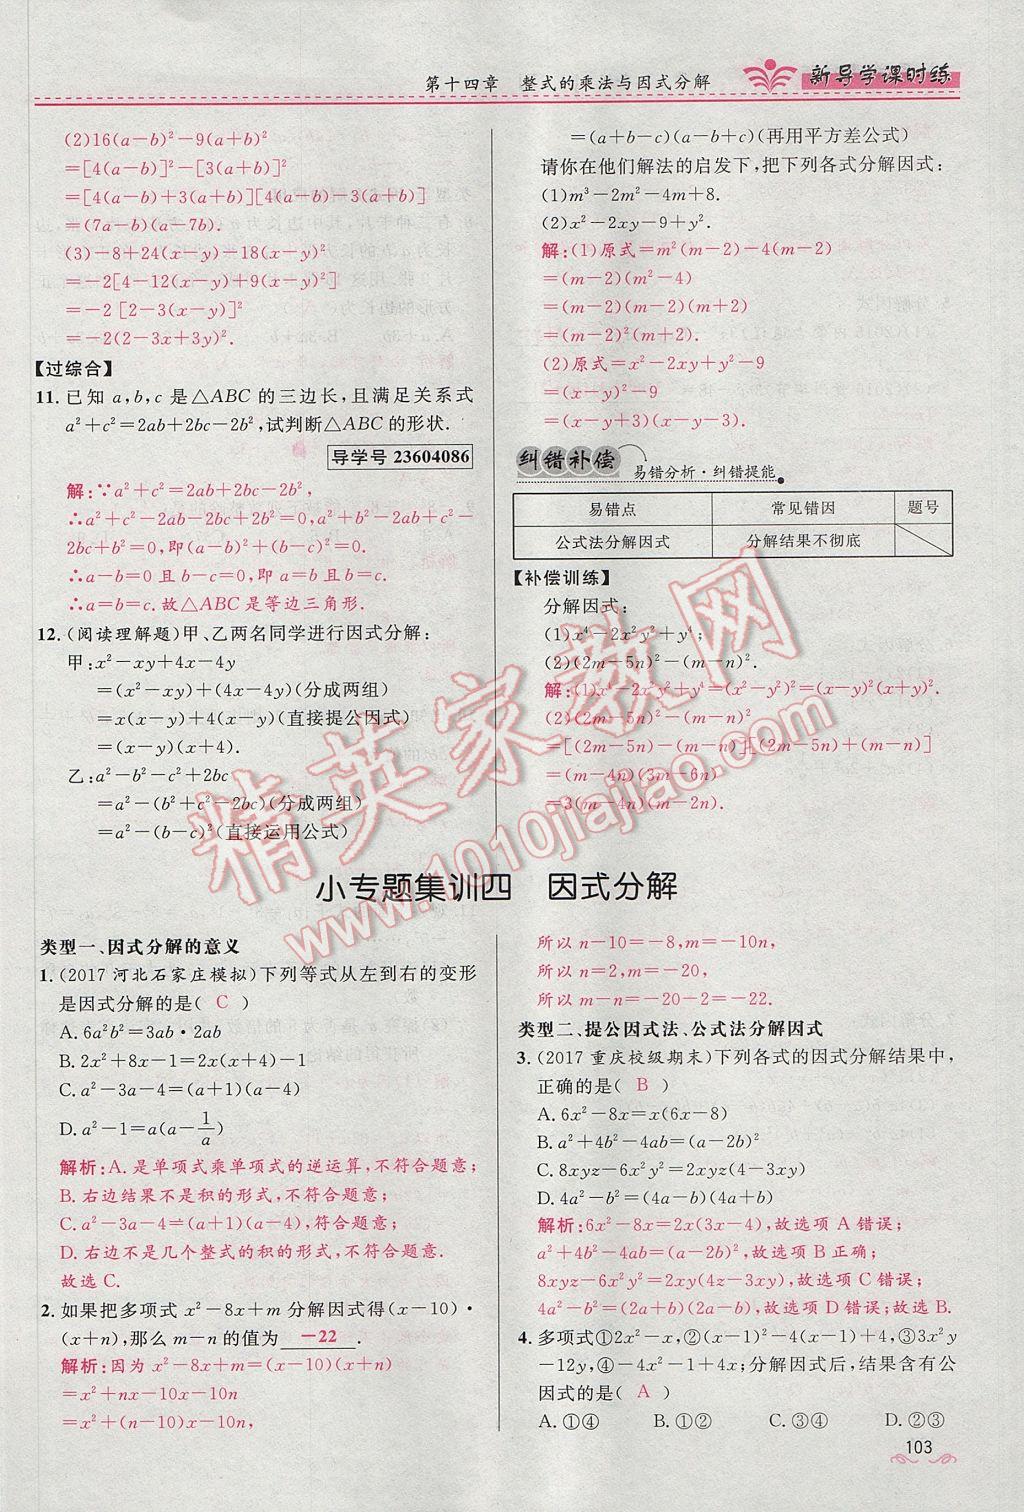 第十四章 整式的乘法与因式分解
新导学课时练
(2)16(a-b)²-9(a+b)²
=[4(a-b)]²-[3(a+b)]²
=[4(a-b)+3(a+b)][4(a-b)-3(a+b)]
=(7a-b)(a-7b).
(3)-8+24(x-y)-18(x-y)²
=-2[4-12(x-y)+9(x-y)²]
=-2[2-3(x-y)]²
=-2(2-3x+3y)².
【过综合】
11.已知a,b,c是△ABC的三边长,且满足关系式
a²+c²=2ab+2bc-2b²,试判断△ABC的形状.
导学号 23604086
解:∵a²+c²=2ab+2bc-2b²,
∴a²+c²-2ab-2bc+2b²=0,a²+b²-2ab+c²-
2bc+b²=0,即(a-b)²+(b-c)²=0,
∴a-b=0且b-c=0,即a=b且b=c,
∴a=b=c.故△ABC是等边三角形.
12.(阅读理解题)甲、乙两名同学进行因式分解:
甲:x²-xy+4x-4y
=(x²-xy)+(4x-4y)(分成两组)
=x(x-y)+4(x-y)(直接提公因式)
=(x-y)(x+4).
乙:a²-b²-c²+2bc
=a²-(b²+c²-2bc)(分成两组)
=a²-(b-c)²(直接运用公式)
=(a+b-c)(a-b+c)(再用平方差公式)
请你在他们解法的启发下,把下列各式分解因式:
(1)m³-2m²-4m+8.
(2)x²-2xy-9+y².
解:(1)原式=m²(m-2)-4(m-2)
=(m-2)(m²-4)
=(m-2)(m-2)(m+2)
=(m-2)²(m+2).
(2)原式=x²-2xy+y²-9
=(x-y)²-9
=(x-y+3)(x-y-3).
纠错补偿 易错分析·纠错提能
易错点 常见错因 题号
公式法分解因式 分解结果不彻底
【补偿训练】
分解因式:
(1)x⁴-2x²y²+y⁴;
(2)(2m-5n)²-(m-n)².
解:(1)x⁴-2x²y²+y⁴=(x²-y²)²=(x-y)²(x+y)².
(2)(2m-5n)²-(m-n)²
=[(2m-5n)-(m-n)][(2m-5n)+(m-n)]
=(m-4n)(3m-6n)
=3(m-4n)(m-2n).
小专题集训四 因式分解
类型一、因式分解的意义
1.(2017河北石家庄模拟)下列等式从左到右的变形
是因式分解的是( C )
A.6a²b²=3ab·2ab
B.2x²+8x-1=2x(x+4)-1
C.a²-3a-4=(a+1)(a-4)
D.a²-1=a(a-1/a)
解析:A.是单项式乘单项式的逆运算,不符合题意;
B.右边结果不是积的形式,不符合题意;
C.a²-3a-4=(a+1)(a-4),符合题意;
D.右边不是几个整式的积的形式,不符合题意.
故选C.
2.如果把多项式x²-8x+m分解因式得(x-10)·
(x+n),那么m-n的值为 -22 .
解析:因为x²-8x+m=(x-10)(x+n)
=x²+nx-10x-10n
=x²+(n-10)x-10n,
所以n-10=-8,m=-10n,
所以n=2,m=-20,
所以m-n=-20-2=-22.
类型二、提公因式法、公式法分解因式
3.(2017重庆校级期末)下列各式的因式分解结果中,
正确的是( B )
A.6x²-8x=x(6x-8)
B.a²+4b²-4ab=(a-2b)²
C.8xyz-6x²y²=2xyz(4-3xy)
D.4a²-b²=(4a-b)(4a+b)
解析:6x²-8x=2x(3x-4),故选项A错误;
a²+4b²-4ab=(a-2b)²,故选项B正确;
8xyz-6x²y²=2xy(4z-3xy),故选项C错误;
4a²-b²=(2a+b)(2a-b),故选项D错误;故选B.
4.多项式①2x²-x,②(x-1)²-4(x-1)+4,③3x²y
-12y,④-4x²-1+4x;分解因式后,结果含有公
因式的是( A )
A.①④ B.①② C.③④ D.②③
103
精英家教网
www.1010jiajiao.com